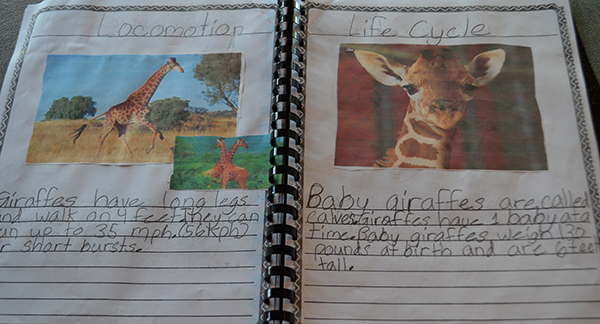 Locomotion
Giraffes have long legs
nd walk on 4 feet. They can
un up to 35 mph. (56kph)
r short bursts.
Life Cycle
Baby giraffes are called
calves. Giraffes have 1 baby at a
time. Baby giraffes weigh 130
pounds at birth and are 6 fee
tall.